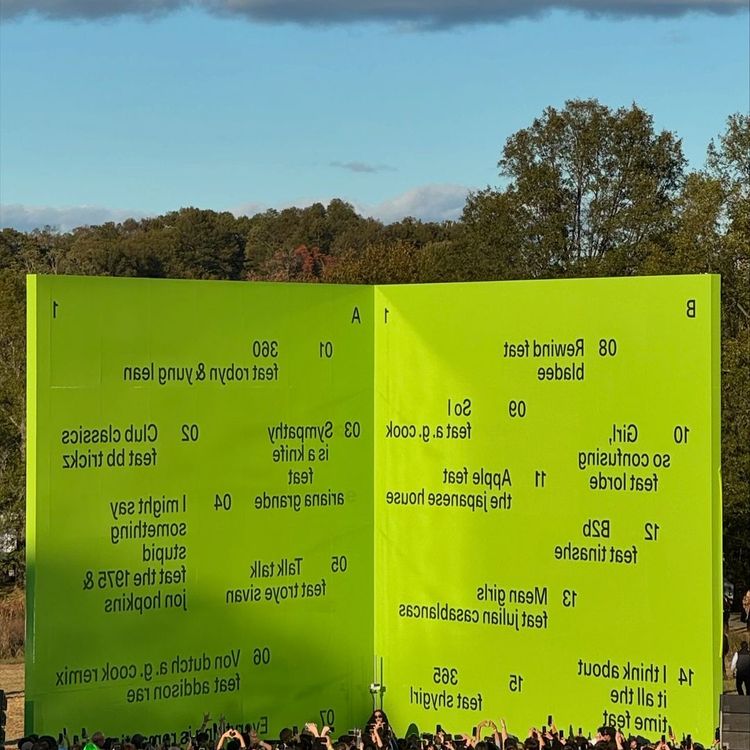 A 1
01 360
feat robyn & yung lean
02 Club classics
feat bb trickz
03 Sympathy
is a knife
feat
ariana grande
04 I might say
something
stupid
feat the 1975 &
jon hopkins
05 Talk talk
feat troye sivan
06 Von dutch a. g. cook remix
feat addison rae
07 Everything is romantic
B 1
08 Rewind feat
bladee
09 So I
feat a. g. cook
10 Girl,
so confusing
feat lorde
11 Apple feat
the japanese house
12 B2b
feat tinashe
13 Mean girls
feat julian casablancas
14 I think about
it all the
time feat
15 365
feat shygirl